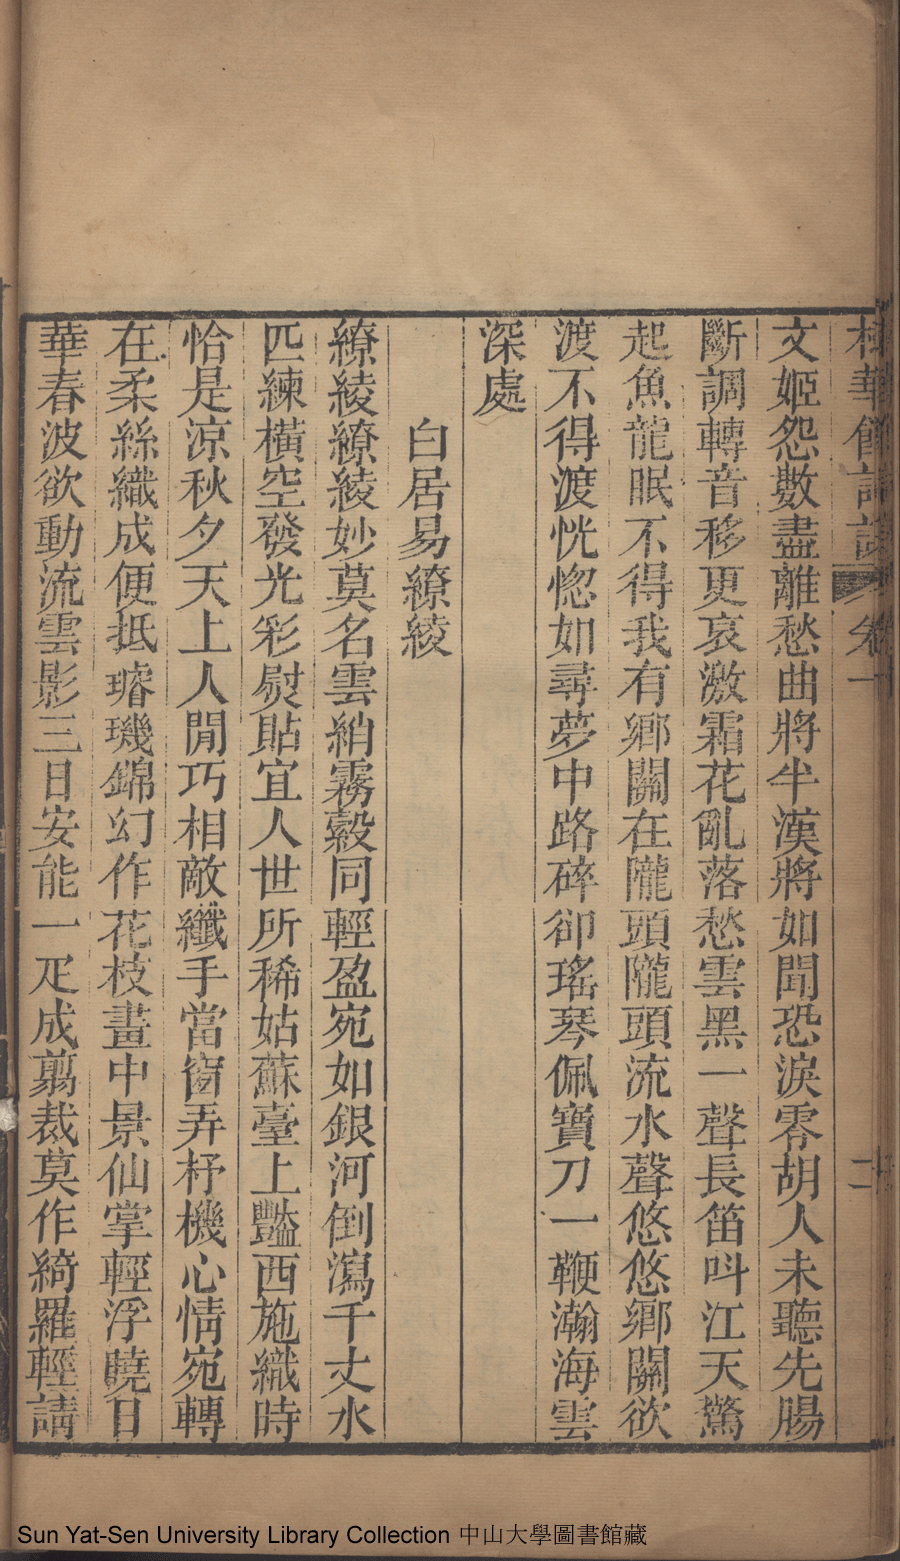 文姬怨數盡離愁曲將半漢將如聞恐淚零胡人未聽先腸
斷調轉音移更哀激霜花亂落愁雲黑一聲長笛呌江天驚
起魚龍眠不得我有鄉關在隴頭隴頭流水聲悠悠鄉關欲
渡不得渡恍惚如尋夢中路碎卻瑤琴佩寶刀一鞭瀚海雲
深處
白居易繚綾
繚綾繚綾妙莫名雲綃霧縠同輕盈宛如銀河倒瀉千丈水
匹練橫空發光彩熨貼宜人世所稀姑蘇臺上豔西施織時
恰是涼秋夕天上人間巧相敵纖手當窗弄杼機心情宛轉
在柔絲織成便抵璿璣錦幻作花枝畫中景仙掌輕浮曉日
華春波欲動流雲影三日安能一疋成剪裁莫作綺羅輕請
Sun Yat-Sen University Library Collection 中山大學圖書館藏